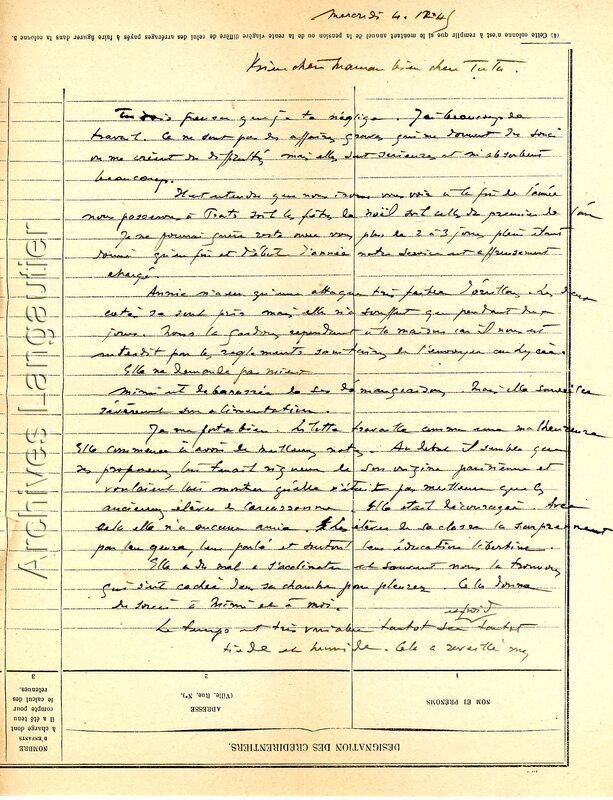 Mercredi 4. 12. 45
(4) Cette colonne n'est à remplir que si le montant annuel de la pension ou de la rente viagère diffère de celui des arrérages payés à faire figurer dans la colonne 8.
Bien chère Maman bien cher Tutu.
Tu dois penser que je te néglige. J'ai beaucoup de
travail. Ce ne sont pas des affaires graves qui me donnent du souci
ou me créent des difficultés mais elles sont sérieuses et m'absorbent
beaucoup.
Il est entendu que nous irons vous voir à la fin de l'année
nous passerons à Prats soit les fêtes de Noël soit celles du premier de l'an
Je ne pourrai guère rester avec vous plus de 2 à 3 jours plein étant
donné qu'en fin et début d'année notre service est affreusement
chargé.
Annie n'a eu qu'une attaque très faible d'oreillons. Les deux
côtés se sont pris mais elle n'a souffert que pendant deux
jours. Nous la gardons cependant à la maison car il nous est
interdit par les règlements sanitaires de l'envoyer au lycée.
Elle ne demande pas mieux
Mimi est débarrassée de ses démangeaisons. Mais elle surveille
sévèrement son alimentation.
Je me porte bien. travaille comme une malheureuse
Elle commence à avoir de meilleures notes. Au début il semble que
ses professeurs lui tenait rigueur de son origine parisienne et
voulaient lui montrer qu'elle n'était pas meilleure que les
anciennes élèves de Carcassonne. Elle était découragée. Avec
cela elle n'a aucune amie. Les élèves de sa classe la surprennent
par leur genre, leur parlé et surtout leur éducation libertine.
Elle a du mal à s'acclimater et souvent nous la trouvons
qui s'est cachée dans sa chambre pour pleurer. Cela donne
du souci à Mimi et à moi.
Le temps est très variable tantôt froid tantôt
tiède et humide. Cela a réveillé mes
1
NOM ET PRÉNOMS
2
ADRESSE
(Ville, Rue, N°).
3
NOMBRE
D'ENFANTS
à charge dont
il a été tenu
compte pour
le calcul des
retenues.
DÉSIGNATION DES CRÉDIRENTIERS.
Archives Langautier